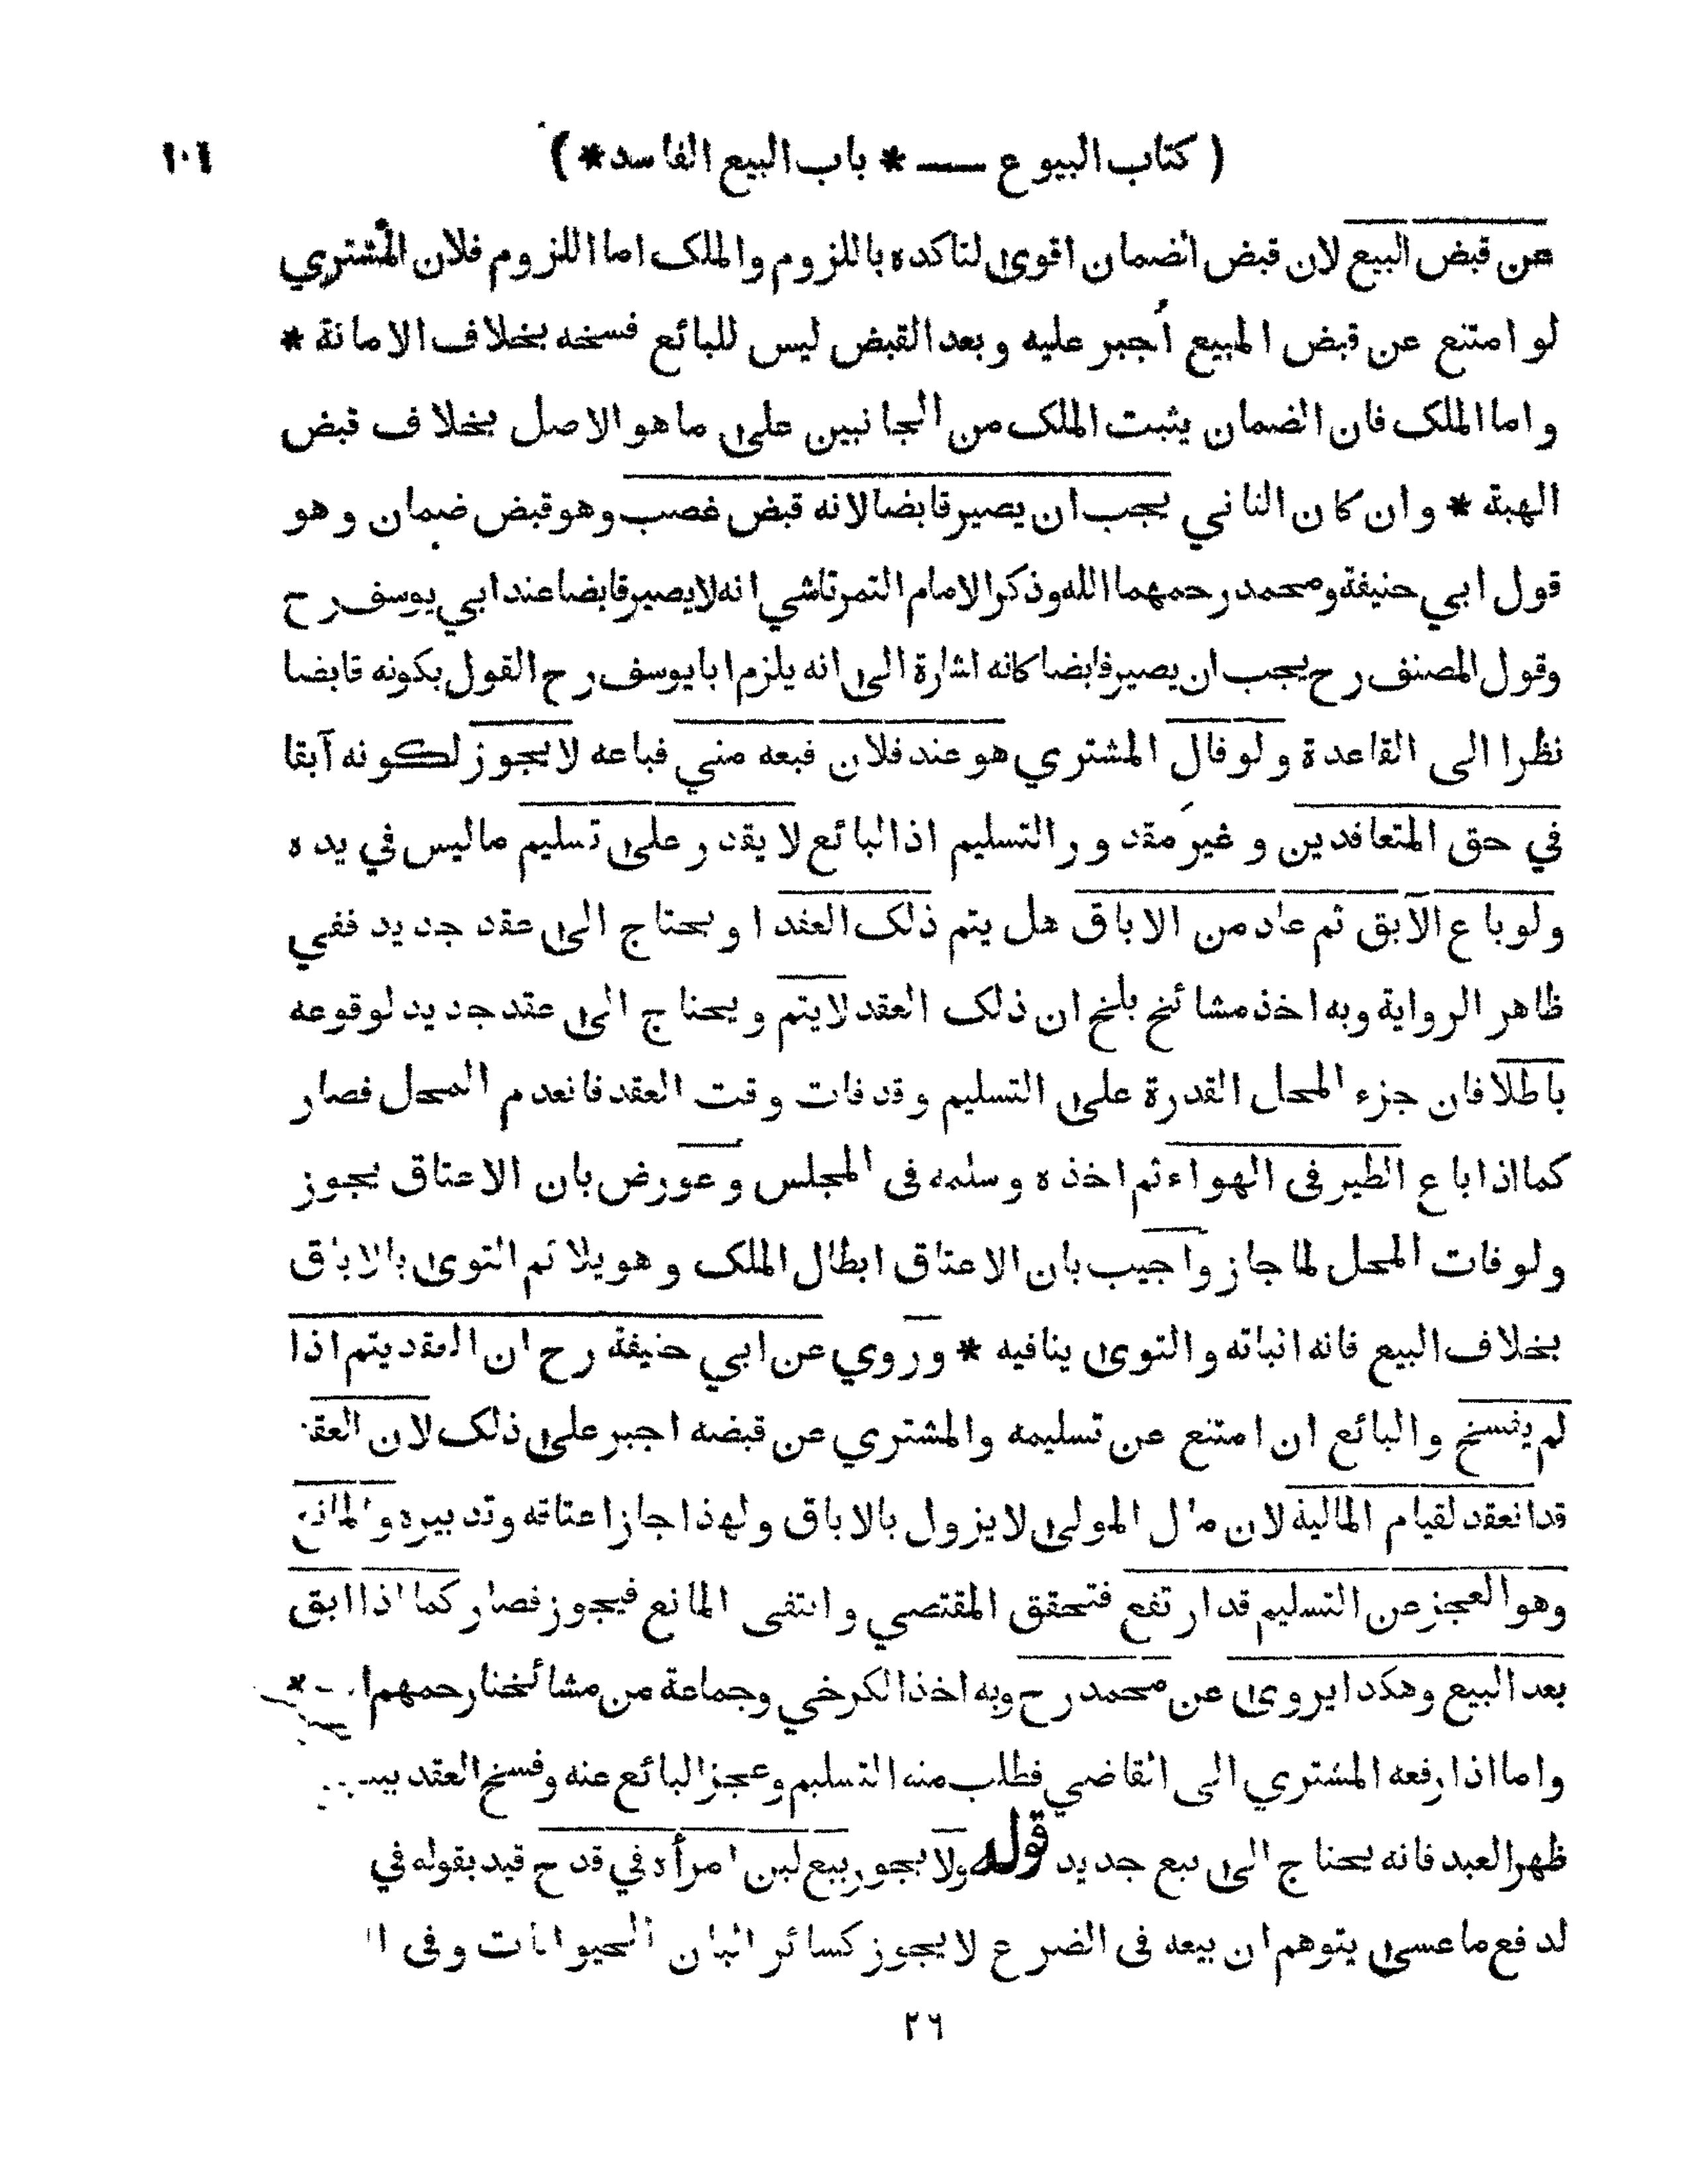 ( كتاب البيوع — * باب البيع الفاسد * ) ٢٠١
عن قبض البيع لان قبض الضمان اقوى لتاكده باللزوم والملك اما اللزوم فلان المشتري
لو امتنع عن قبض المبيع أجبر عليه وبعد القبض ليس للبائع فسخه بخلاف الامانة *
واما الملك فان الضمان يثبت الملك من الجانبين على ما هو الاصل بخلاف قبض
الهبة * وان كان الثاني يجب ان يصير قابضا لانه قبض غصب وهو قبض ضمان وهو
قول ابي حنيفة ومحمد رحمهما الله وذكر الامام التمرتاشي انه لا يصير قابضا عند ابي يوسف رح
وقول المصنف رح يجب ان يصير قابضا كانه اشارة الى انه يلزم ابا يوسف رح القول بكونه قابضا
نظرا الى القاعدة ولو قال المشتري هو عند فلان فبعه مني فباعه لا يجوز لكونه آبقا
في حق المتعاقدين وغير مقدور التسليم اذ البائع لا يقدر على تسليم ما ليس في يده
ولو باع الآبق ثم عاد من الاباق هل يتم ذلك العقد او يحتاج الى عقد جديد ففي
ظاهر الرواية وبه اخذ مشائخ بلخ ان ذلك العقد لا يتم ويحتاج الى عقد جديد لوقوعه
باطلا فان جزء المحل القدرة على التسليم وقد فات وقت العقد فانعدم المحل فصار
كما اذا باع الطير في الهواء ثم اخذه وسلمه في المجلس وعورض بان الاعتاق يجوز
ولو فات المحل لما جاز وأجيب بان الاعتاق ابطال الملك وهو يلائم التوى بالاباق
بخلاف البيع فانه اثباته والتوى ينافيه * وروي عن ابي حنيفة رح ان العقد يتم اذا
لم يفسخ والبائع ان امتنع عن تسليمه والمشتري عن قبضه اجبر على ذلك لان العقد
قد انعقد لقيام المالية لان مال المولى لا يزول بالاباق ولهذا جاز اعتاقه وتدبيره والمانع
وهو العجز عن التسليم قد ارتفع فتحقق المقتضي وانتفى المانع فيجوز فصار كما اذا ابق
بعد البيع وهكذا يروى عن محمد رح وبه اخذ الكرخي وجماعة من مشائخنا رحمهم *
واما اذا رفعه المشتري الى القاضي فطلب منه التسليم وعجز البائع عنه وفسخ العقد
ظهر العبد فانه يحتاج الى بيع جديد قوله ولا يجوز بيع لبن امرأة في قدح قيد بقوله في
لدفع ما عسى يتوهم ان بيعه في الضرع لا يجوز كسائر البان الحيوانات وفي
٢٦